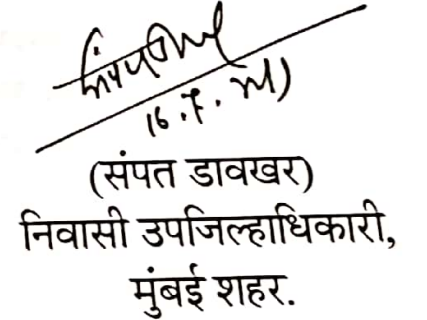 (संपत डावखर)
निवासी उपजिल्हाधिकारी,
मुंबई शहर.